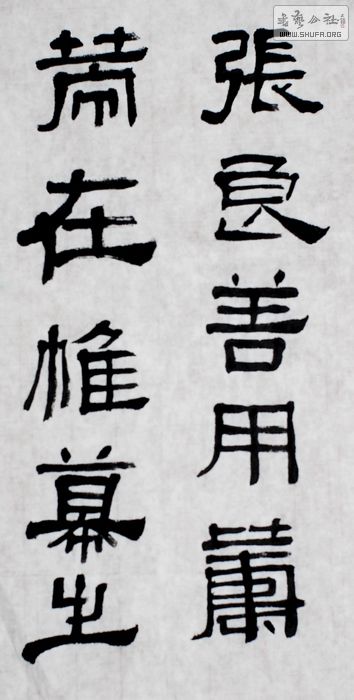 張良善用籌
策在帷幕之
書藝公社
WWW.SHUFA.ORG